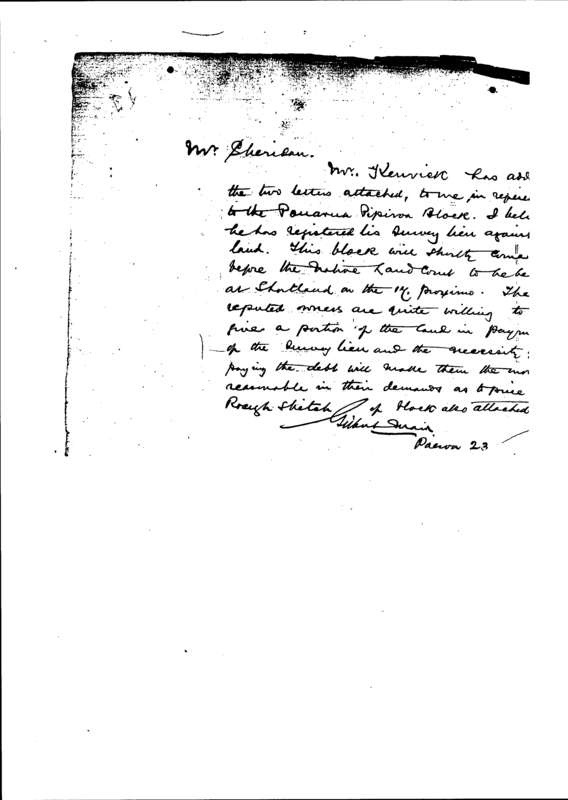 Mr. Sheridan.
Mr. Kenrick has add
the two letters attached, to me in refere
to the Block. I beli
he has registered his survey lien agains
land. This block will shortly come
before the Native Land Court to be he
at Shortland on the 17 proximo. The
reputed owners are quite willing to
give a portion of the land in paym
of the survey lien and the necessity
paying the debt will make them the mor
reasonable in their demands as to price
Rough Sketch of block also attached
Gilbert Mair
Paeroa 23